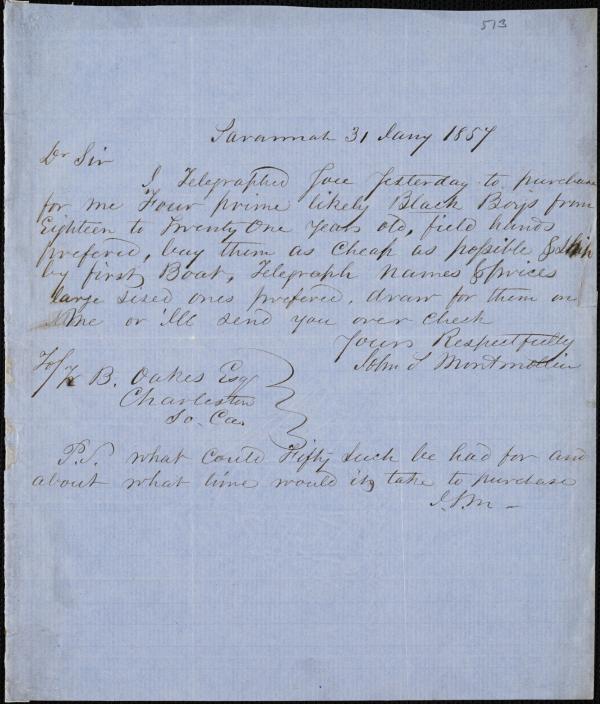 513
Savannah 31 Jany 1857
Dr Sir
I Telegraphed you yesterday to purchase
for me Four prime likely Black Boys from
Eighteen to Twenty One years old, field hands
prefered, buy them as cheap as possible & Ship
by first Boat, Telegraph names & prices
large sized ones prefered, draw for them on
Me or 'Ill send you over check
Yours Respectfully
John S Montmollin
To/ Z B. Oakes Esq
Charleston
So. Ca.
P.S. what could Fifty such be had for and
about what time would it take to purchase
J.S.M -